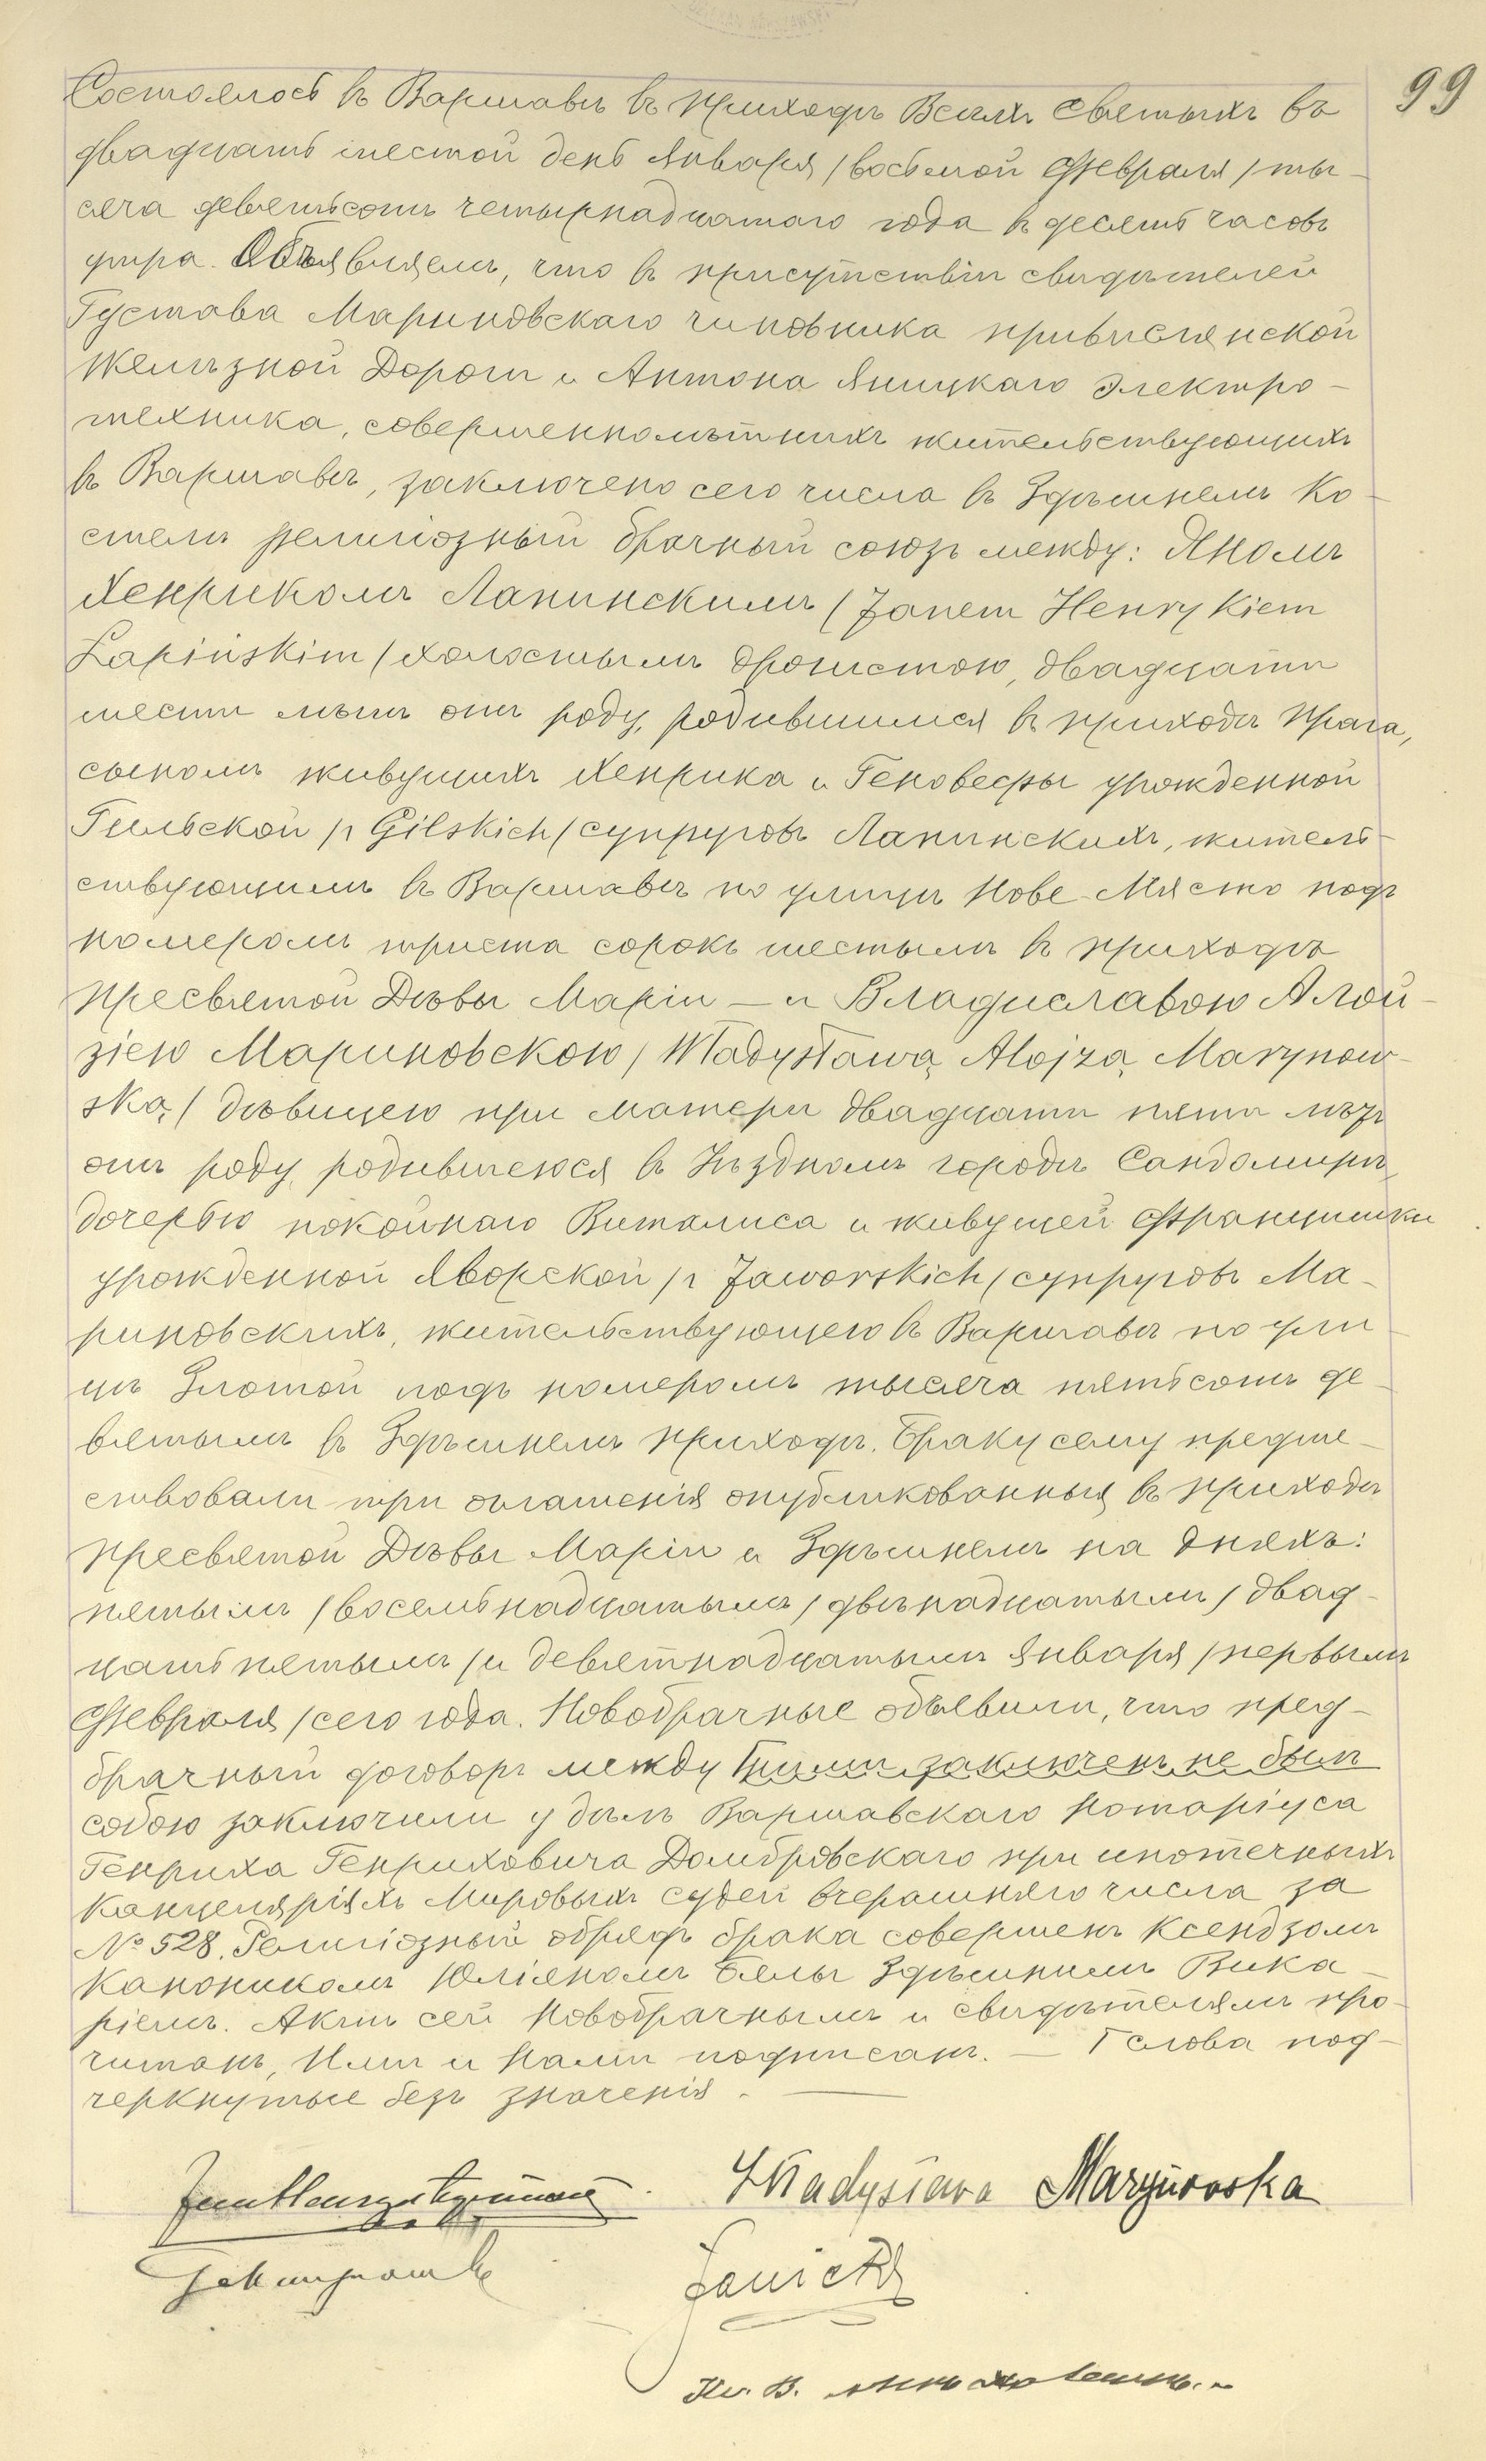 99
Состоялось въ Варшавѣ въ приходѣ Всѣхъ Святыхъ въ
двадцать шестой день Января /восьмой Февраля/ ты-
сяча девятьсотъ четырнадцатаго года въ десять часовъ
утра. Объявляемъ, что въ присутствіи свидѣтелей
Густава Мариновскаго чиновника привислянской
Желѣзной Дороги и Антона Яницкаго электро-
техника, совершеннолѣтнихъ жительствующихъ
въ Варшавѣ, заключено сего числа въ Здѣшнемъ Ко-
стелѣ религіозный брачный союзъ между: Яномъ
Хенрикомъ Лапинскимъ /Janem Henrykiem
Łapińskim/ холостымъ дрогистою, двадцати
шести лѣтъ отъ роду, родившимся въ приходѣ Прага,
сыномъ живущихъ Хенрика и Геновефы урожденной
Гильской /z Gilskich/ супруговъ Лапинскихъ, житель-
ствующимъ въ Варшавѣ по улицѣ Нове-Място подъ
номеромъ триста сорокъ шестымъ въ приходѣ
Пресвятой Дѣвы Маріи — и Владиславою Алой-
зіею Мариновскою /Władysławą Alojzą Marynow-
ską/ дѣвицею при матери двадцати пяти лѣтъ
отъ роду, родившеюся въ Уѣздномъ городѣ Сандомирѣ,
дочерью покойнаго Виталиса и живущей Францишки
урожденной Яворской /z Jaworskich/ супруговъ Ма-
риновскихъ, жительствующею въ Варшавѣ по ули-
цѣ Злотой подъ номеромъ тысяча пятьсотъ де-
вятымъ въ Здѣшнемъ приходѣ. Браку сему предше-
ствовали три оглашенія опубликованныя въ приходѣ
Пресвятой Дѣвы Маріи и Здѣшнемъ на дняхъ:
пятымъ /восемьнадцатымъ/ двѣнадцатымъ /двад-
цать пятымъ/ и девятнадцатымъ Января /первымъ
Февраля/ сего года. Новобрачные объявили, что пред-
брачный договоръ между Гними заключенъ не былъ
собою заключили у дѣлъ Варшавскаго Нотаріуса
Генриха Генриховича Домбровскаго при ипотечныхъ
Канцеляріяхъ Мировыхъ судей вчерашняго числа за
№ 528. Религіозный обрядъ брака совершенъ Ксендзомъ
Каноникомъ Юліяномъ Бялы Здѣшнимъ Вика-
ріемъ. Актъ сей Новобрачнымъ и свидѣтелямъ про-
читанъ, Ими и Нами подписанъ. — Г слова под-
черкнутые безъ значенія. —
Władysława Marynowska
Janicki